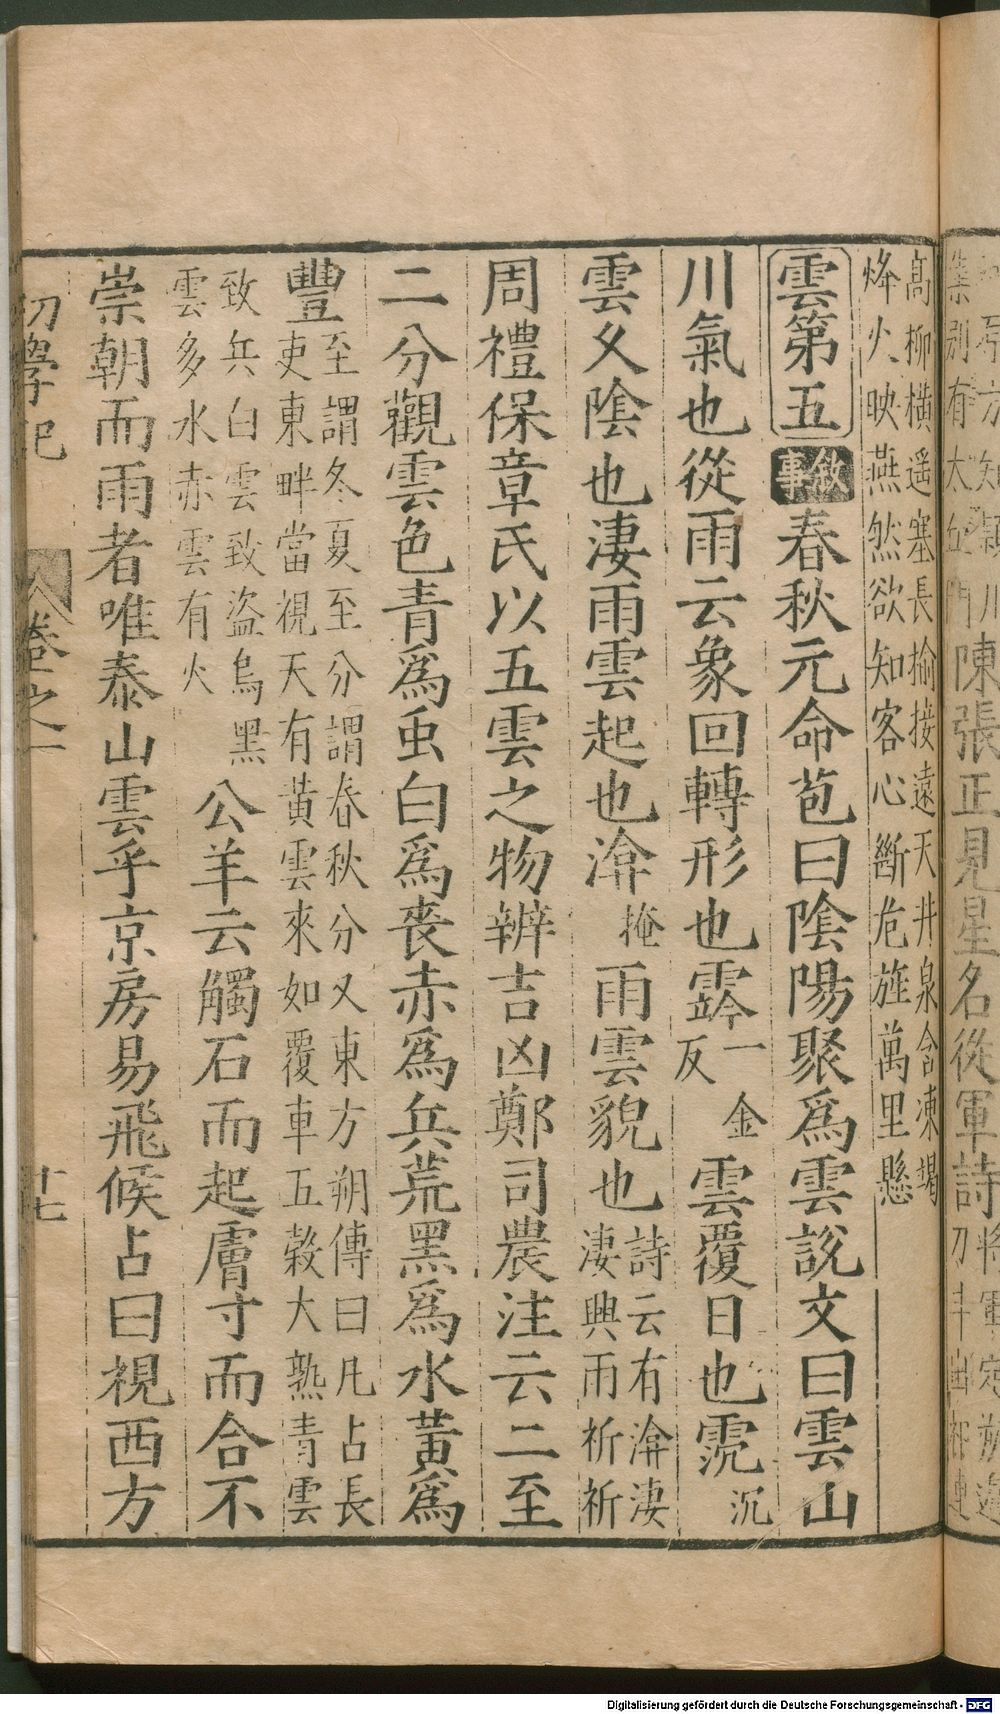 陳張正見星名從軍詩
高柳橫遥塞長揄接遠天井泉含凍竭
烽火映燕然欲知客心斷危旌萬里懸
雲第五 敘事 春秋元命苞曰陰陽聚爲雲說文曰雲山
川氣也從雨云象回轉形也霒一金反雲覆日也霃沉
雲久陰也淒雨雲起也渰掩雨雲貌也詩云有渰淒淒興雨祈祈
周禮保章氏以五雲之物辨吉凶鄭司農注云二至
二分觀雲色青爲虫白爲喪赤爲兵荒黑爲水黃爲
豐至謂冬夏至分謂春秋分又東方朔傳曰凡占長吏東畔當視天有黃雲來如覆車五穀大熟青雲
致兵白雲致盜烏黑雲多水赤雲有火公羊云觸石而起膚寸而合不
崇朝而雨者唯泰山雲乎京房易飛候占曰視西方
初學記
卷之一
十七
Digitalisierung gefördert durch die Deutsche Forschungsgemeinschaft - DFG